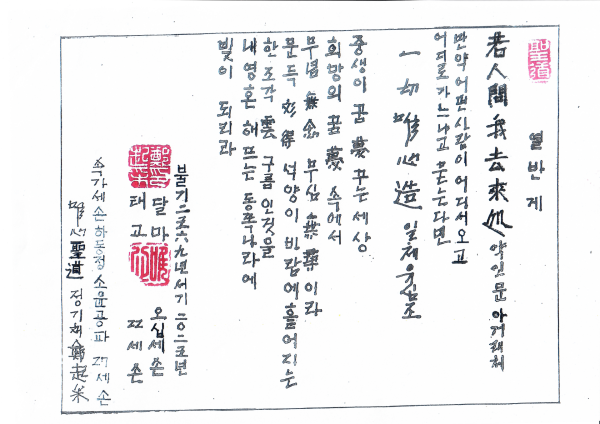 聖道
열반게
若人問我去來処 약인문아거래처
만약 어떤 사람이 어디서 오고
어디로 가느냐고 묻는다면
一切唯心造 일체유심조
중생이 꿈 夢 꾸는 세상
희망의 꿈 夢 속에서
무념 無念 무심 이라
문득 석양이 바람에 흩어지는
한 조각 雲 구름인것을
내 영혼 해뜨는 동쪽나라에
빛이 되리라
불기 二五六九年 서기 二0二五년
달마 오십세손
태고 세손
속가세손 하동정 소윤공파 세손
唯心 聖道 정기채 鄭起采